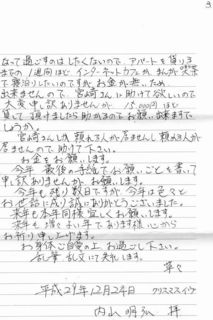 3
なって過ごすのはしたくないので、アパートを借りる
までの1週間ほどインターネットカフェか、まんが喫茶
で寝泊りしたいのですが、お金が無い、ため
出来ませんので、宮崎さんに助けて欲しいので
大変申し訳ありませんが 15,000円ほど
貸して頂きましたら助かるのでお願い出来ますで
しょうか。
宮崎さんしか頼れる人が居ませんし頼める人が
居ませんので助けて下さい。
お金をお願いします。
今年最後の手紙でお願いごとを書いて
申し訳ありませんがお願いします。
今年も残り数日ですが今年は色々と
お世話に成り誠にありがとうございました。
来年も本年同様宜しくお願いします。
来年も幸多い年であります様に心から
お祈り申し上げます。
お身体ご自愛の上お過ごし下さい。
乱筆乱文にて失礼します。
草々
平成29年12月24日 クリスマスイヴ
内山 明弘 拝